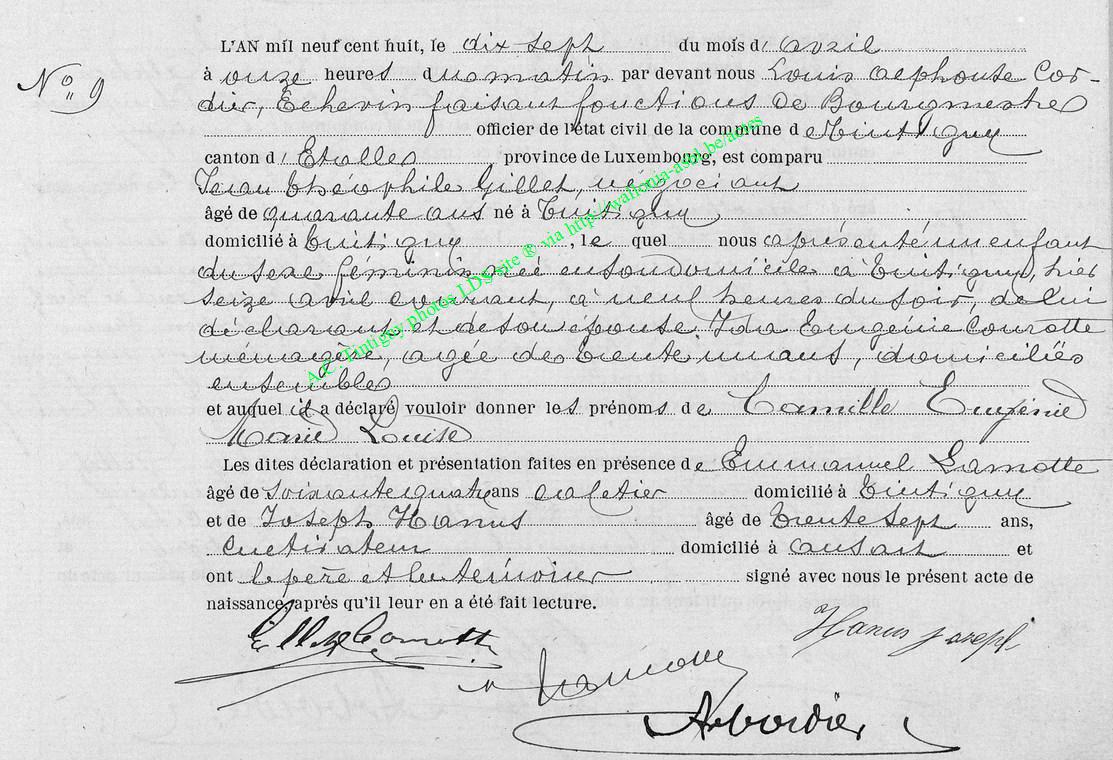 L'AN mil neuf cent huit, le dix sept du mois d'avril
N° 9
à onze heures du matin par devant nous Louis Alphonse Cor-
dier, Echevin faisant fonctions de Bourgmestre
officier de l'état civil de la commune de Tintigny
canton d'Etalle province de Luxembourg, est comparu
Jean Théophile Gillet, négociant
âgé de quarante ans né à Tintigny,
domicilié à Tintigny, le quel nous a présenté un enfant
du sexe féminin, né en son domicile à Tintigny, hier
seize avril courant, à neuf heures du soir, de lui
déclarant et de son épouse Ida Eugénie Cornette
ménagère, agée de trente un ans, domiciliés
ensembles
et auquel il a déclaré vouloir donner les prénoms de Camille Eugénie
Marie Louise
Les dites déclaration et présentation faites en présence de Emmanuel Lamotte
âgé de soixante quatre ans cafetier domicilié à Tintigny
et de Joseph Hanus âgé de trente sept ans,
cultivateur domicilié à Ansart et
ont le père et les témoins signé avec nous le présent acte de
naissance, après qu'il leur en a été fait lecture.
Hanus Joseph
A. Cordier
A.C. Tintigny photos LDS site ® via http://wallonia-asbl.be/actes